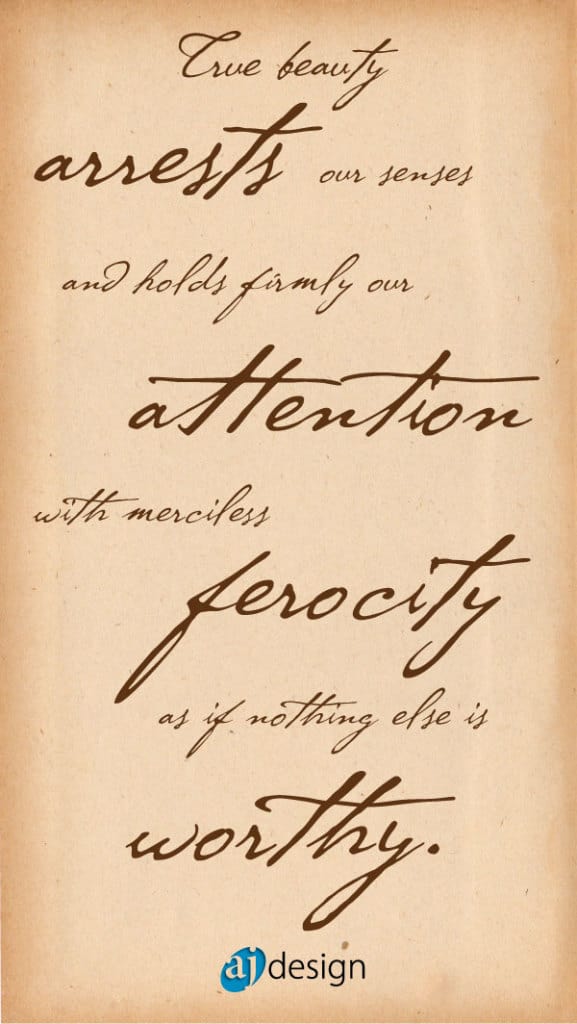 True beauty
arrests our senses
and holds firmly our
attention
with merciless
ferocity
as if nothing else is
worthy.
aj design